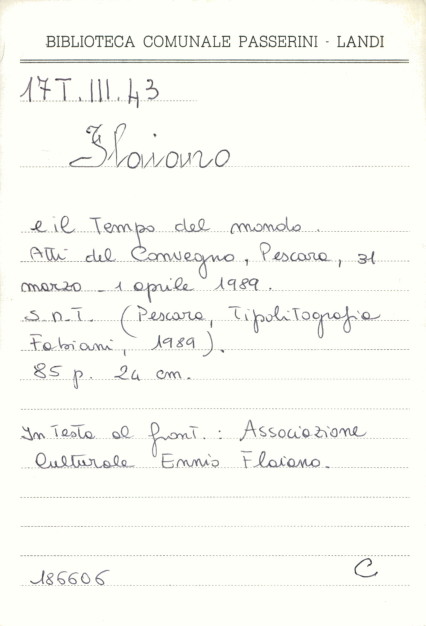 BIBLIOTECA COMUNALE PASSERINI - LANDI
17T.III.43
Flaiano
e il Tempo del mondo.
Atti del Convegno, Pescara, 31
marzo - 1 aprile 1989.
S.n.T. (Pescara, Tipolitografia
Fabiani, 1989).
85 p. 24 cm.
In Testa al front.: Associazione
Culturale Ennio Flaiano.
186606
C